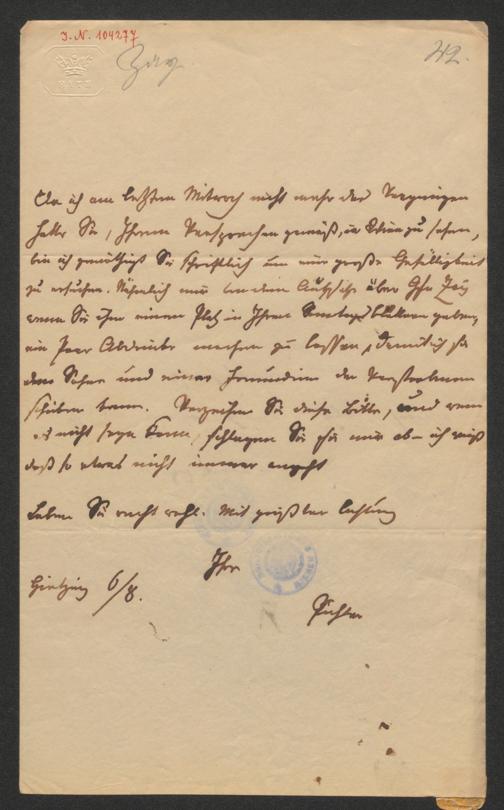 I. N. 104277
Zay
42.
Da ich am letzten Mitwoch nicht mehr das Vergnügen
hatte Sie, Ihrem Versprechen gemäß, in Wien zu sehen,
bin ich genöthigt Sie schriftlich um eine große Gefälligkeit
zu ersuchen. Nämlich mir von dem Aufsatze über Gfn Zay
wenn Sie ihm einen Platz in Ihren blättern geben,
ein Paar Abdrücke machen zu lassen, damit ich sie
dem Sohne und einer Freundinn der Verstorbenen
schicken kann. Verzeihen Sie diese Bitte, und wenn
es nicht seyn kann, schlagen Sie sie mir ab – ich weiß
daß so etwas nicht immer angeht
Leben Sie recht wohl. Mit größter Achtung
Ihre
Hietzing 6/8.
Pichler